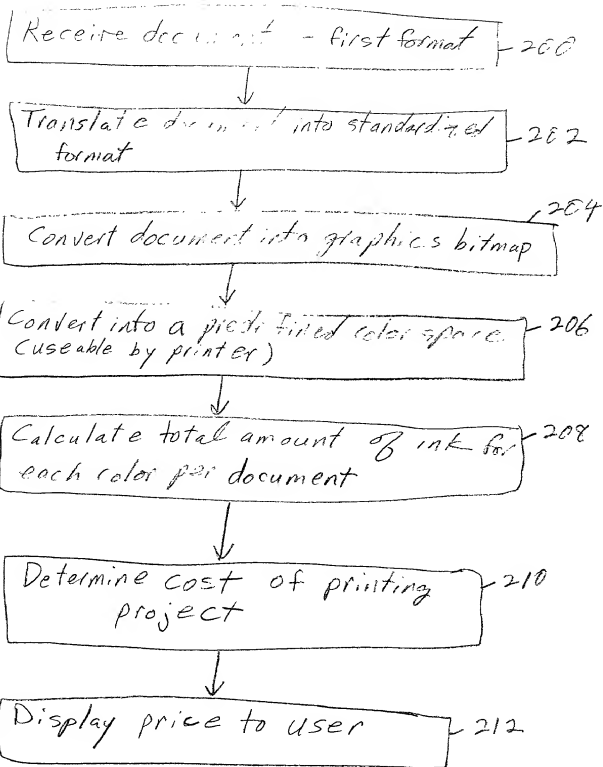 Receive document - first format 200
Translate document into standardized 202
format
204
Convert document into graphics bitmap
Convert into a predefined color space 206
(useable by printer)
Calculate total amount of ink for 208
each color per document
Determine cost of printing 210
project
Display price to user 212